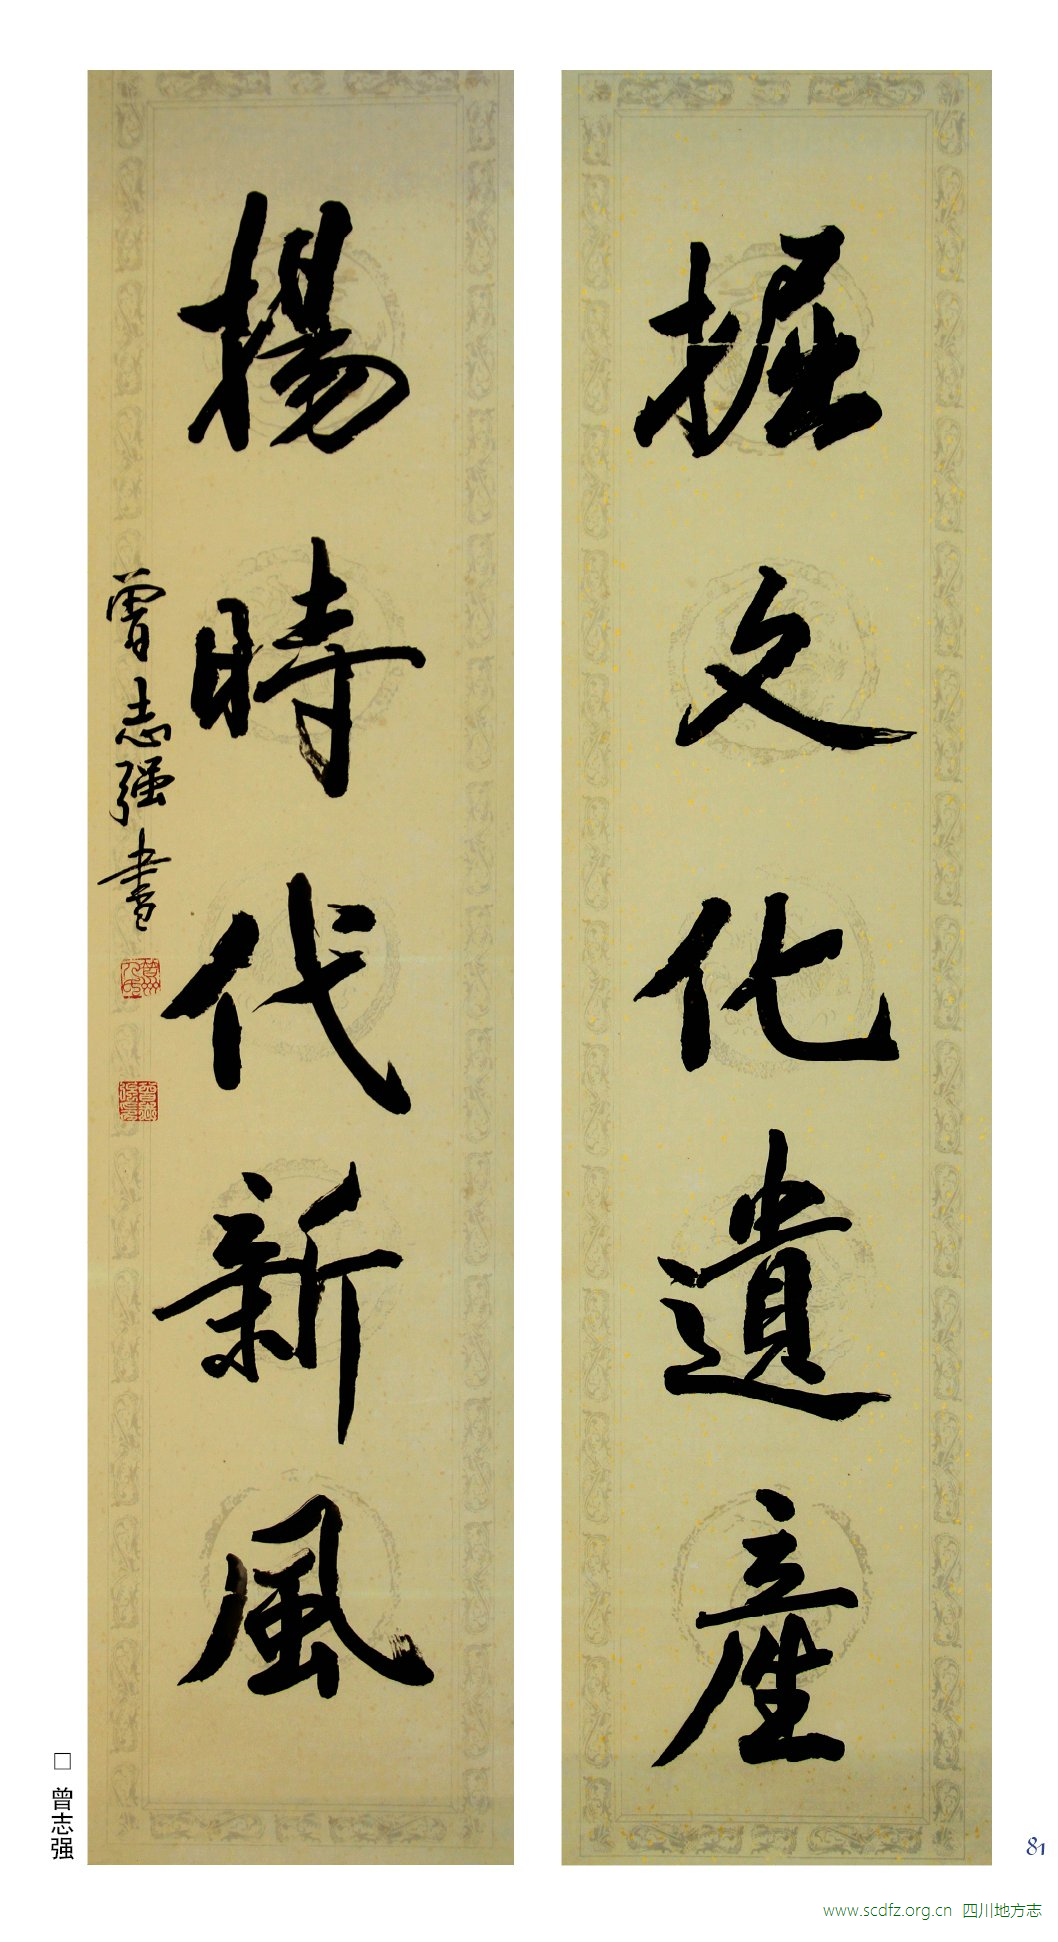 掘文化遺産
揚時代新風
曾志强書
□ 曾志强
81
www.scdfz.org.cn 四川地方志